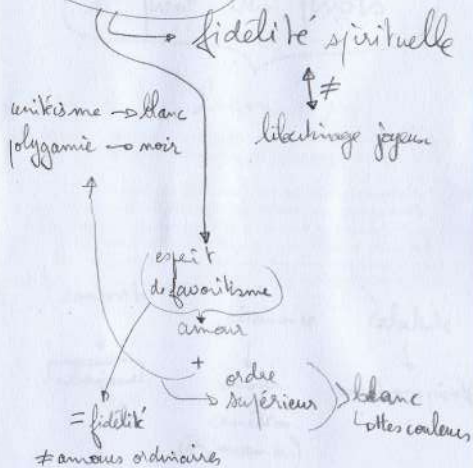 fidélité spirituelle
≠
libertinage joyeux
unitéisme → blanc
polygamie → noir
esprit
de favoritisme
amour
+
ordre
supérieur
blanc
ttes couleurs
= fidélité
≠ amours ordinaires